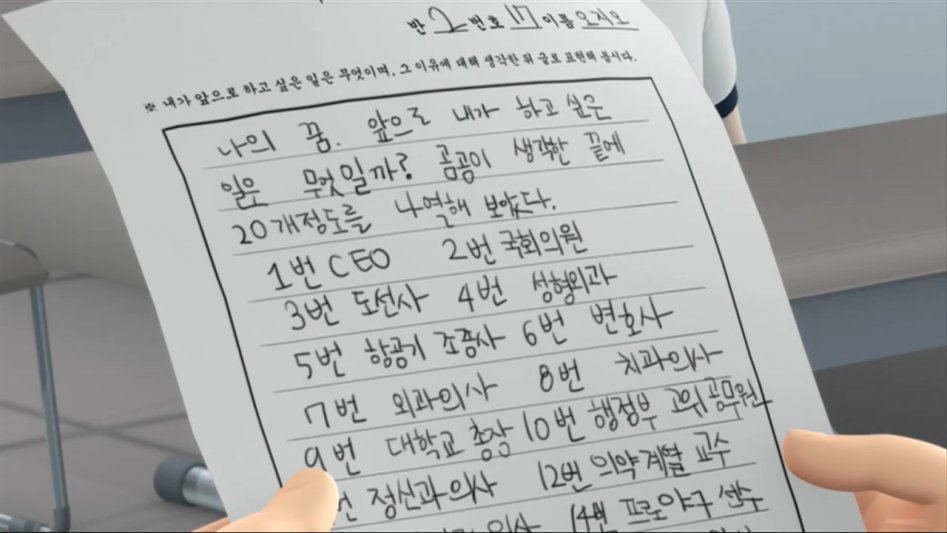 반 2 번호 17 이름 오지오
※ 내가 앞으로 하고 싶은 일은 무엇이며, 그 이유에 대해 생각한 뒤 글로 표현해 봅시다.
나의 꿈. 앞으로 내가 하고 싶은
일은 무엇일까? 곰곰이 생각한 끝에
20개정도를 나열해 보았다.
1번 CEO 2번 국회의원
3번 도선사 4번 성형외과
5번 항공기 조종사 6번 변호사
7번 외과의사 8번 치과의사
9번 대학교 총장 10번 행정부 고위공무원
번 정신과의사 12번 의약계열 교수
의사 14번 프로야구 선수